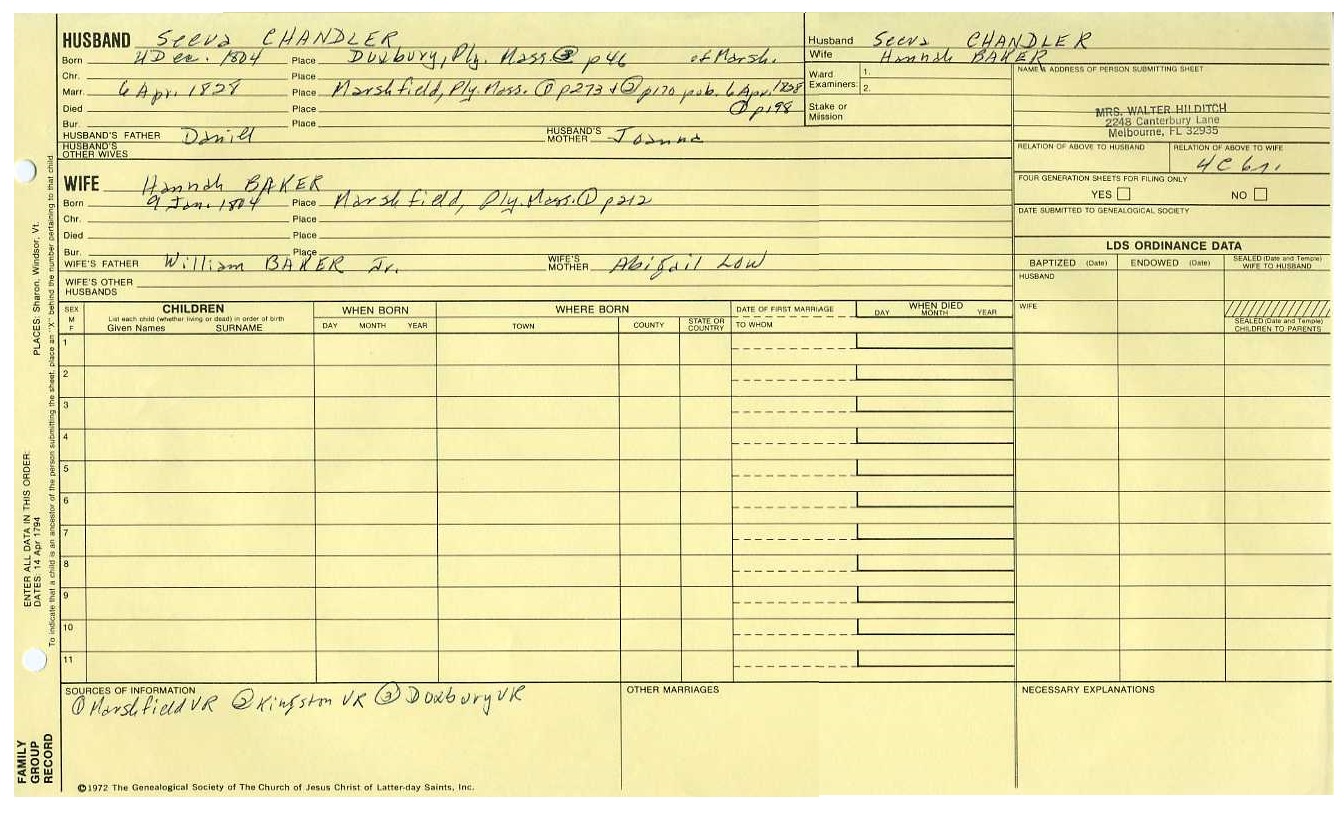 HUSBAND Seeva CHANDLER
Born 4 Dec. 1804 Place Duxbury, Ply. Mass. ③ p46 of Marsh.
Chr. Place
Marr. 6 Apr. 1828 Place Marshfield, Ply. Mass. ① p273 + ② p170 pub. 6 Apr. 1828
① p198
Died Place
Bur. Place
HUSBAND'S FATHER Daniel HUSBAND'S MOTHER Joanna
HUSBAND'S OTHER WIVES
WIFE Hannah BAKER
Born 9 Jan. 1804 Place Marshfield, Ply. Mass. ① p212
Chr. Place
Died Place
Bur. Place
WIFE'S FATHER William BAKER Jr. WIFE'S MOTHER Abigail LOW
WIFE'S OTHER HUSBANDS
Husband Seeva CHANDLER
Wife Hannah BAKER
Ward Examiners: 1.
2.
Stake or Mission
NAME & ADDRESS OF PERSON SUBMITTING SHEET
MRS. WALTER HILDITCH
2248 Canterbury Lane
Melbourne, FL 32935
RELATION OF ABOVE TO HUSBAND RELATION OF ABOVE TO WIFE
4C 6r.
FOUR GENERATION SHEETS FOR FILING ONLY
YES NO
DATE SUBMITTED TO GENEALOGICAL SOCIETY
LDS ORDINANCE DATA
BAPTIZED (Date) ENDOWED (Date) SEALED (Date and Temple) WIFE TO HUSBAND
HUSBAND
WIFE
SEALED (Date and Temple) CHILDREN TO PARENTS
SEX M F
CHILDREN
List each child (whether living or dead) in order of birth
Given Names SURNAME
WHEN BORN
DAY MONTH YEAR
WHERE BORN
TOWN COUNTY STATE OR COUNTRY
DATE OF FIRST MARRIAGE
TO WHOM
WHEN DIED
DAY MONTH YEAR
1
2
3
4
5
6
7
8
9
10
11
SOURCES OF INFORMATION
① Marshfield VR ② Kingston VR ③ Duxbury VR
OTHER MARRIAGES
NECESSARY EXPLANATIONS
©1972 The Genealogical Society of The Church of Jesus Christ of Latter-day Saints, Inc.
FAMILY GROUP RECORD
ENTER ALL DATA IN THIS ORDER:
DATES: 14 Apr 1794
PLACES: Sharon, Windsor, Vt.
To indicate that a child is an ancestor of the person submitting the sheet, place an "X" behind the number pertaining to that child.